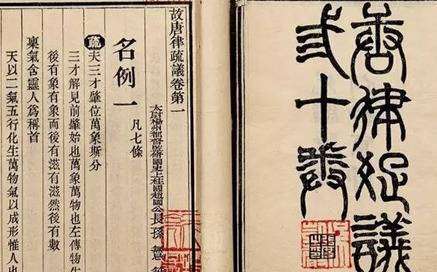 唐律疏議
弎十卷
故唐律疏議卷第一
太尉揚州都督監修國史上柱國趙國公長孫無忌
名例一 凡七條
疏 夫三才肇位萬象斯分
三才解見前肇始也萬象萬物也左傳物生
後有象有象而後有滋有滋然後有數
稟氣含靈人爲稱首
天以二氣五行化生萬物氣以成形惟人也